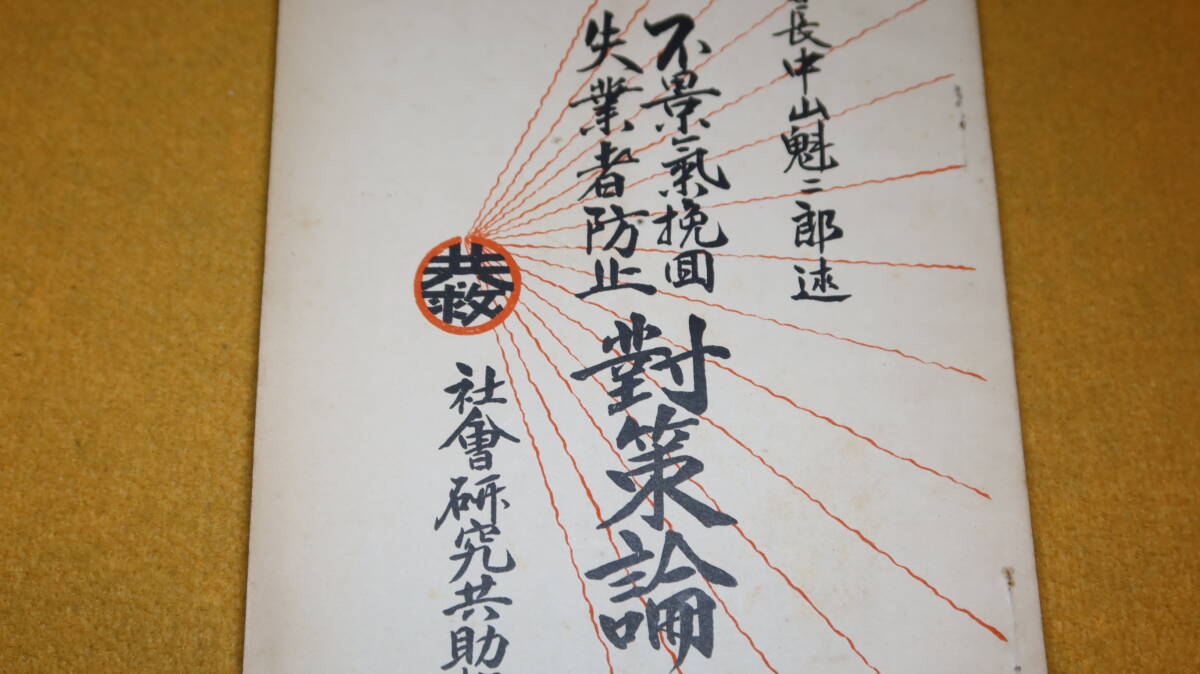 長中山魁二郎述
不景氣挽回
失業者防止
對策論
共救
社會研究共助